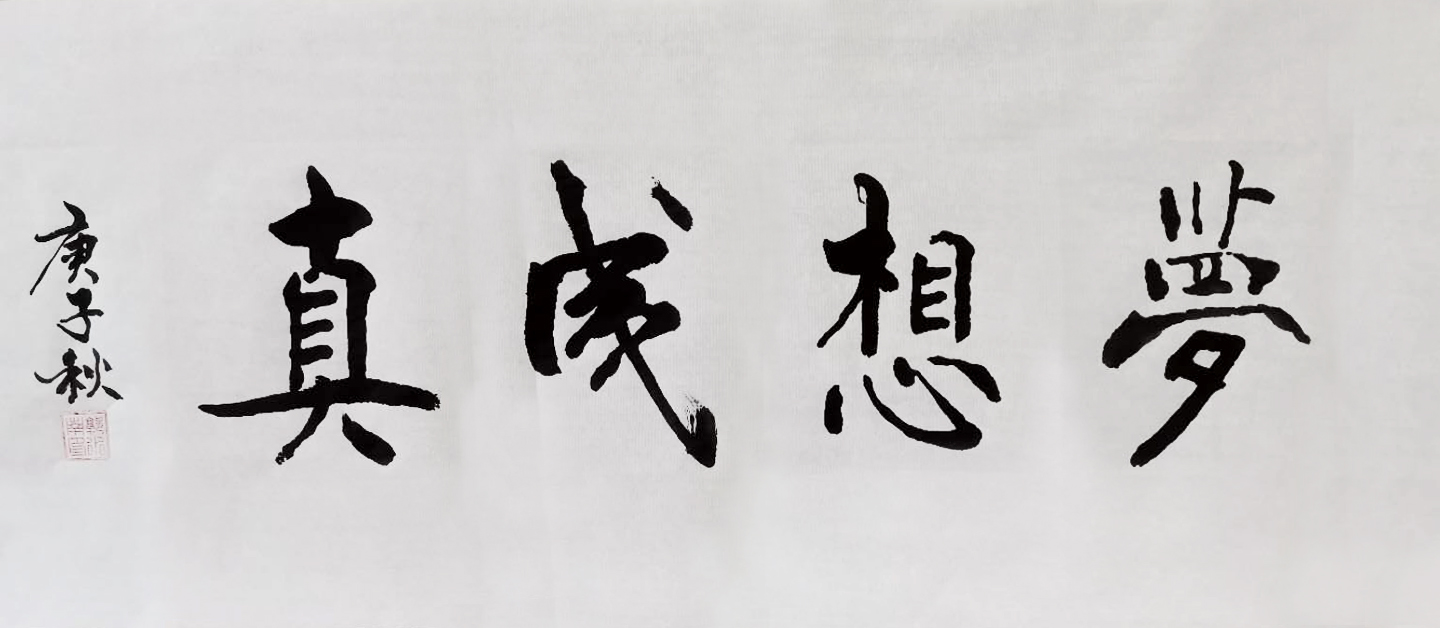 夢想成真
庚子秋